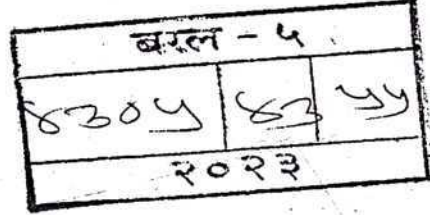 बरल - ५
४३०५ ४३ ५५
२०२३